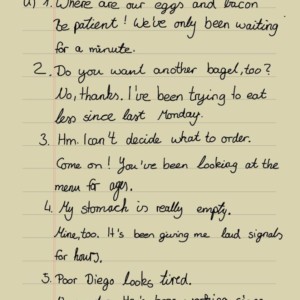 a) 1. Where are our eggs and bacon
Be patient! We've only been waiting
for a minute.
2. Do you want another bagel, too?
No, thanks. I've been trying to eat
less since last Monday.
3. Hm. I can't decide what to order.
Come on! You've been looking at the
menu for ages.
4. My stomach is really empty.
Mine, too. It's been giving me loud signals
for hours.
5. Poor Diego looks tired.